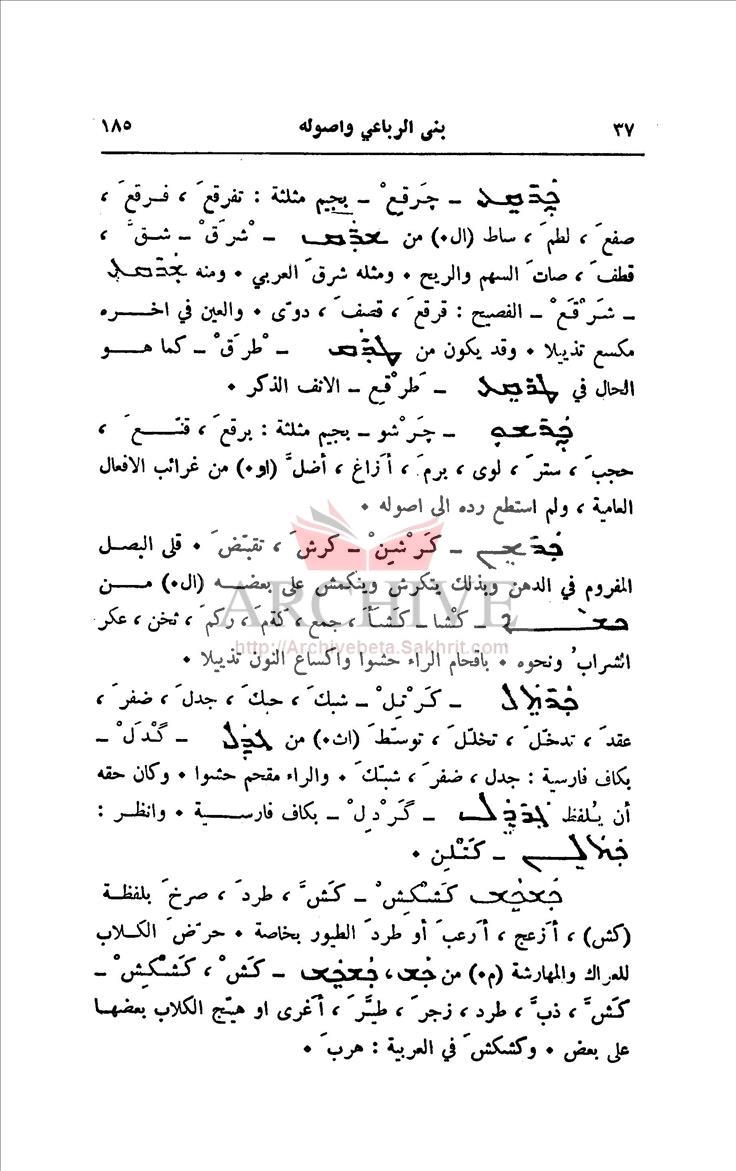 ٣٧ بنى الرباعي واصوله ١٨٥
ـ چَرقِعْ ـ بجيم مثلثة : تفرقعَ ، فرقعَ ،
صفعَ ، لطمَ ، ساط (ال٠) من ـ شرَقْ ـ شقَّ ،
قطفَ ، صاتَ السهم والريح ٠ ومثله شرق العربي ٠ ومنه
ـ شَرْقَعْ ـ الفصيح : قرقعَ ، قصفَ ، دوّى ٠ والعين في اخره
مكسع تذييلا ٠ وقد يكون من ـ طرَقْ ـ كما هو
الحال في ـ طَرْقِع ـ الانف الذكر ٠
ـ چَرْشو ـ بجيم مثلثة : برقعَ ، قنّعَ ،
حجبَ ، سترَ ، لوى ، برمَ ، أزاغ ، أضلَّ (او٠) من غرائب الافعال
العامية ، ولم استطع رده الى اصوله ٠
ـ كَرْشِينْ ـ كرشَ ، تقبّضَ ٠ قلى البصل
المفروم في الدهن وبذلك يتكرش وينكمش على بعضه (ال٠) من
ـ كْشا ـ كَشأَ ، جمع ، كوّمَ ، ركمَ ، ثخن ، عكر
الشرابُ ونحوه ٠ باقحام الراء حشوا واكساع النون تذييلا ٠
ARCHIVE
http://Archivebeta.Sakhrit.com
ـ كَرْتِلْ ـ شبكَ ، حبكَ ، جدلَ ، ضفرَ ،
عقدَ ، تدخّلَ ، تخللَ ، توسّطَ (اث٠) من ـ گْدَلْ ـ
بكاف فارسية : جدل ، ضفرَ ، شبّكَ ٠ والراء مقحم حشوا ٠ وكان حقه
أن يُلفظ ـ گَرْدِلْ ـ بكاف فارسية ٠ وانظر :
ـ كَتْلِن ٠
كَشْكِشْ ـ كَشَّ ، طردَ ، صرخَ بلفظة
(كش) ، أزعج ، أرعبَ أو طردَ الطيور بخاصة ٠ حرّضَ الكلاب
للعراك والمهارشة (م٠) من ، ـ كَشْ ، كَشْكِشْ ـ
كَشَّ ، ذبَّ ، طرد ، زجرَ ، طيَّرَ ، أغرى او هيّج الكلاب بعضها
على بعض ٠ وكشكشَ في العربية : هربَ ٠